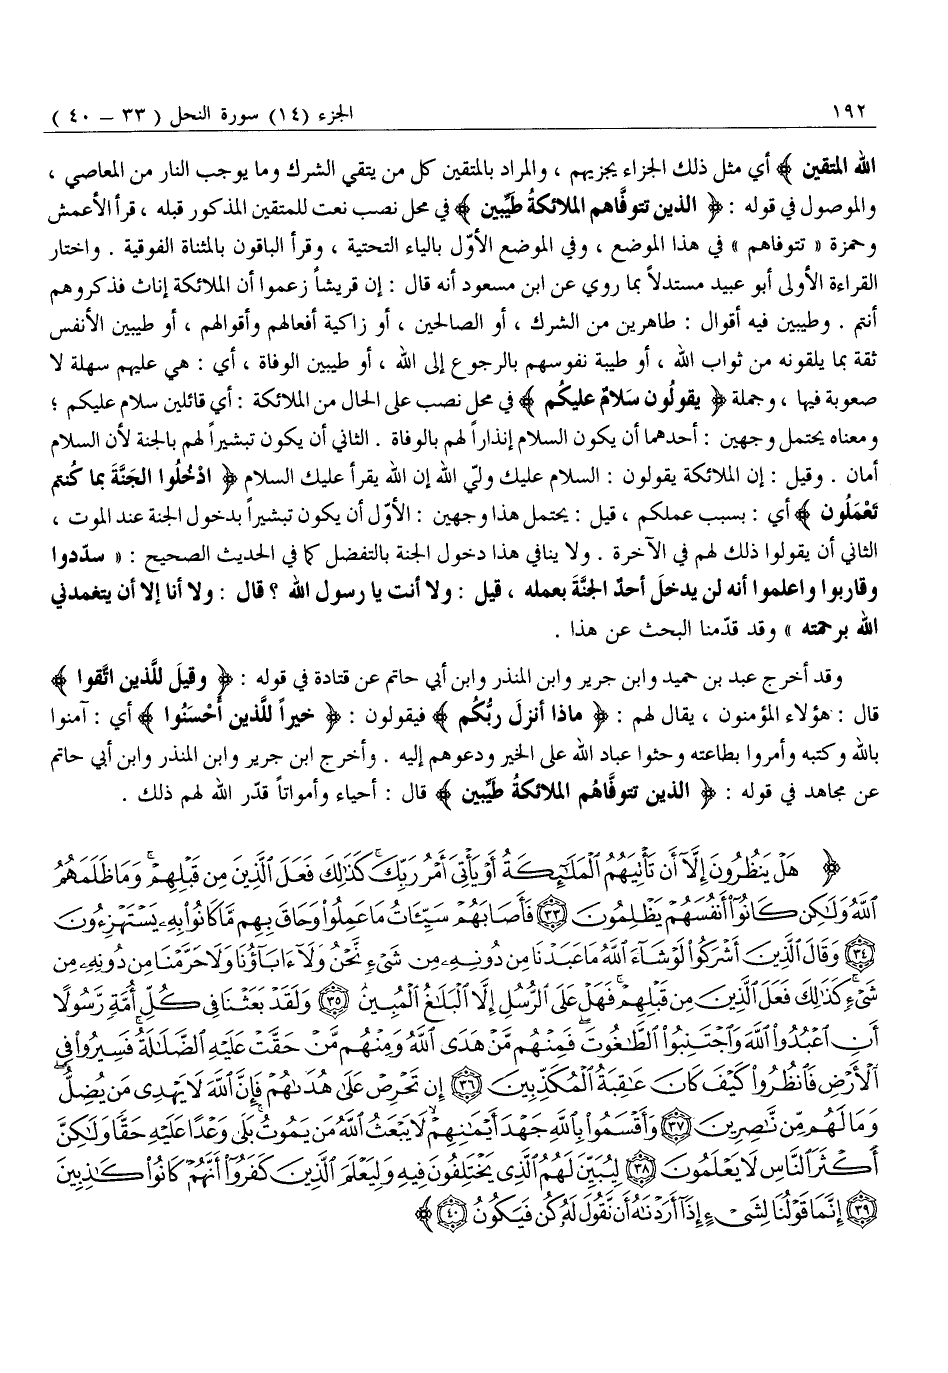 ١٩٢ الجزء (١٤) سورة النحل ( ٣٣ – ٤٠ )
الله المتقين ﴾ أي مثل ذلك الجزاء يجزيهم ، والمراد بالمتقين كل من يتقي الشرك وما يوجب النار من المعاصي ،
والموصول في قوله : ﴿ الذين تتوفَّاهم الملائكةُ طيِّبين ﴾ في محل نصب نعت للمتقين المذكور قبله ، قرأ الأعمش
وحمزة « تتوفاهم » في هذا الموضع ، وفي الموضع الأوّل بالياء التحتية ، وقرأ الباقون بالمثناة الفوقية . واختار
القراءة الأولى أبو عبيد مستدلاً بما روي عن ابن مسعود أنه قال : إن قريشاً زعموا أن الملائكة إناث فذكروهم
أنتم . وطيبين فيه أقوال : طاهرين من الشرك ، أو الصالحين ، أو زاكية أفعالهم وأقوالهم ، أو طيبين الأنفس
ثقة بما يلقونه من ثواب الله ، أو طيبة نفوسهم بالرجوع إلى الله ، أو طيبين الوفاة ، أي : هي عليهم سهلة لا
صعوبة فيها ، وجملة ﴿ يقولُون سَلامٌ عليكُم ﴾ في محل نصب على الحال من الملائكة : أي قائلين سلام عليكم ؛
ومعناه يحتمل وجهين : أحدهما أن يكون السلام إنذاراً لهم بالوفاة . الثاني أن يكون تبشيراً لهم بالجنة لأن السلام
أمان . وقيل : إن الملائكة يقولون : السلام عليك وليّ الله إن الله يقرأ عليك السلام ﴿ ادْخُلُوا الجَنَّةَ بما كُنتم
تَعْمَلُون ﴾ أي : بسبب عملكم ، قيل : يحتمل هذا وجهين : الأوّل أن يكون تبشيراً بدخول الجنة عند الموت ،
الثاني أن يقولوا ذلك لهم في الآخرة . ولا ينافي هذا دخول الجنة بالتفضل كما في الحديث الصحيح : « سدّدوا
وقاربوا واعلموا أنه لن يدخلَ أحدٌ الجنَّةَ بعمله ، قيل : ولا أنت يا رسول الله ؟ قال : ولا أنا إلا أن يتغمدني
الله برحمته » وقد قدّمنا البحث عن هذا .
وقد أخرج عبد بن حميد وابن جرير وابن المنذر وابن أبي حاتم عن قتادة في قوله : ﴿ وقيلَ للَّذين اتَّقوا ﴾
قال : هؤلاء المؤمنون ، يقال لهم : ﴿ ماذا أنزلَ ربُّكُم ﴾ فيقولون : ﴿ خيراً للَّذين أحْسَنُوا ﴾ أي : آمنوا
بالله وكتبه وأمروا بطاعته وحثوا عباد الله على الخير ودعوهم إليه . وأخرج ابن جرير وابن المنذر وابن أبي حاتم
عن مجاهد في قوله : ﴿ الذين تتوفَّاهُم الملائكةُ طيِّبين ﴾ قال : أحياء وأمواتاً قدّر الله لهم ذلك .
﴿ هَلْ يَنظُرُونَ إِلَّآ أَن تَأْتِيَهُمُ ٱلْمَلَٰٓئِكَةُ أَوْ يَأْتِىَ أَمْرُ رَبِّكَ ۚ كَذَٰلِكَ فَعَلَ ٱلَّذِينَ مِن قَبْلِهِمْ ۚ وَمَا ظَلَمَهُمُ
ٱللَّهُ وَلَٰكِن كَانُوٓا۟ أَنفُسَهُمْ يَظْلِمُونَ ﴿٣٣﴾ فَأَصَابَهُمْ سَيِّـَٔاتُ مَا عَمِلُوا۟ وَحَاقَ بِهِم مَّا كَانُوا۟ بِهِۦ يَسْتَهْزِءُونَ
﴿٣٤﴾ وَقَالَ ٱلَّذِينَ أَشْرَكُوا۟ لَوْ شَآءَ ٱللَّهُ مَا عَبَدْنَا مِن دُونِهِۦ مِن شَىْءٍ نَّحْنُ وَلَآ ءَابَآؤُنَا وَلَا حَرَّمْنَا مِن دُونِهِۦ مِن
شَىْءٍ ۚ كَذَٰلِكَ فَعَلَ ٱلَّذِينَ مِن قَبْلِهِمْ ۚ فَهَلْ عَلَى ٱلرُّسُلِ إِلَّا ٱلْبَلَٰغُ ٱلْمُبِينُ ﴿٣٥﴾ وَلَقَدْ بَعَثْنَا فِى كُلِّ أُمَّةٍ رَّسُولًا
أَنِ ٱعْبُدُوا۟ ٱللَّهَ وَٱجْتَنِبُوا۟ ٱلطَّٰغُوتَ ۖ فَمِنْهُم مَّنْ هَدَى ٱللَّهُ وَمِنْهُم مَّنْ حَقَّتْ عَلَيْهِ ٱلضَّلَٰلَةُ ۚ فَسِيرُوا۟ فِى
ٱلْأَرْضِ فَٱنظُرُوا۟ كَيْفَ كَانَ عَٰقِبَةُ ٱلْمُكَذِّبِينَ ﴿٣٦﴾ إِن تَحْرِصْ عَلَىٰ هُدَىٰهُمْ فَإِنَّ ٱللَّهَ لَا يَهْدِى مَن يُضِلُّ ۖ
وَمَا لَهُم مِّن نَّٰصِرِينَ ﴿٣٧﴾ وَأَقْسَمُوا۟ بِٱللَّهِ جَهْدَ أَيْمَٰنِهِمْ ۙ لَا يَبْعَثُ ٱللَّهُ مَن يَمُوتُ ۚ بَلَىٰ وَعْدًا عَلَيْهِ حَقًّا وَلَٰكِنَّ
أَكْثَرَ ٱلنَّاسِ لَا يَعْلَمُونَ ﴿٣٨﴾ لِيُبَيِّنَ لَهُمُ ٱلَّذِى يَخْتَلِفُونَ فِيهِ وَلِيَعْلَمَ ٱلَّذِينَ كَفَرُوٓا۟ أَنَّهُمْ كَانُوا۟ كَٰذِبِينَ
﴿٣٩﴾ إِنَّمَا قَوْلُنَا لِشَىْءٍ إِذَآ أَرَدْنَٰهُ أَن نَّقُولَ لَهُۥ كُن فَيَكُونُ ﴿٤٠﴾ ﴾